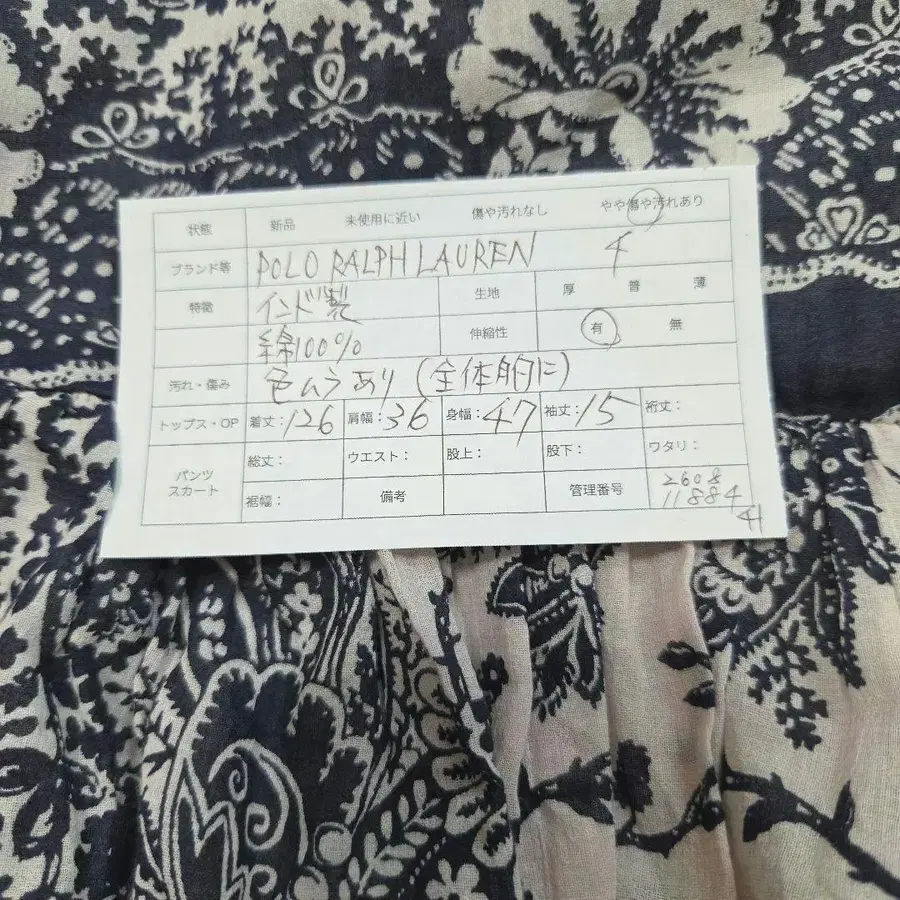 状態 新品 未使用に近い 傷や汚れなし やや傷や汚れあり
ブランド等 POLO RALPH LAUREN 4
特徴 インド製 生地 厚 普 薄
綿100% 伸縮性 有 無
汚れ・傷み 色ムラあり(全体的に)
トップス・OP 着丈:126 肩幅:36 身幅:47 袖丈:15 裄丈:
パンツ スカート 総丈: ウエスト: 股上: 股下: ワタリ:
裾幅: 備考 管理番号 2608
11884